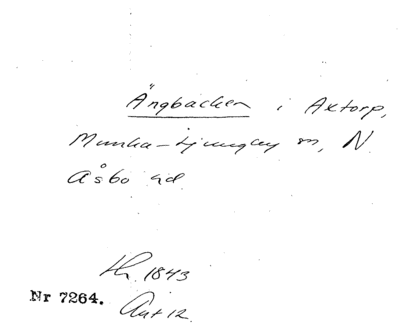 Ängbacken i Axtorp,
Munka-Ljungby sn, N
Åsbo hd
1843
Nr 7264.
12